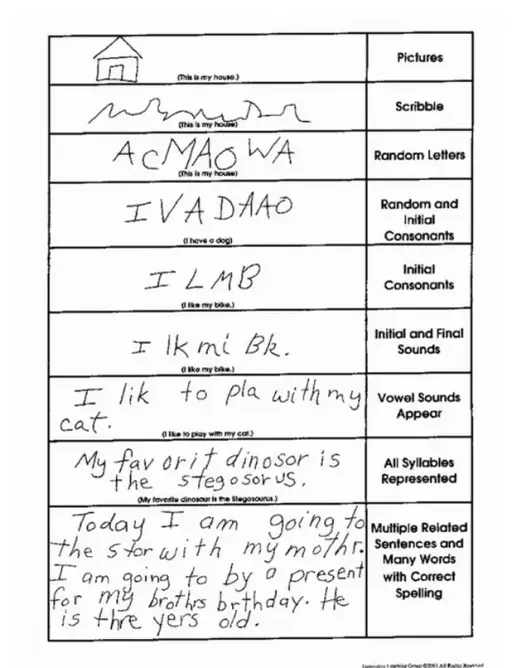 Pictures
(This is my house.)
Scribble
(This is my house)
A C M A O W A
Random Letters
(This is my house)
I V A D A A O
Random and
Initial
Consonants
(I have a dog)
I L M B
Initial
Consonants
(I like my bike.)
I lk mi Bk.
Initial and Final
Sounds
(I like my bike.)
I lik to pla with my
cat.
Vowel Sounds
Appear
(I like to play with my cat.)
My favorit dinosor is
the stegosorus.
All Syllables
Represented
(My favorite dinosaur is the Stegosaurus.)
Today I am going to
the stor with my mothr.
I am going to by a present
for my brothrs brthday. He
is thre yers old.
Multiple Related
Sentences and
Many Words
with Correct
Spelling
Learning Group ©2001 All Rights Reserved